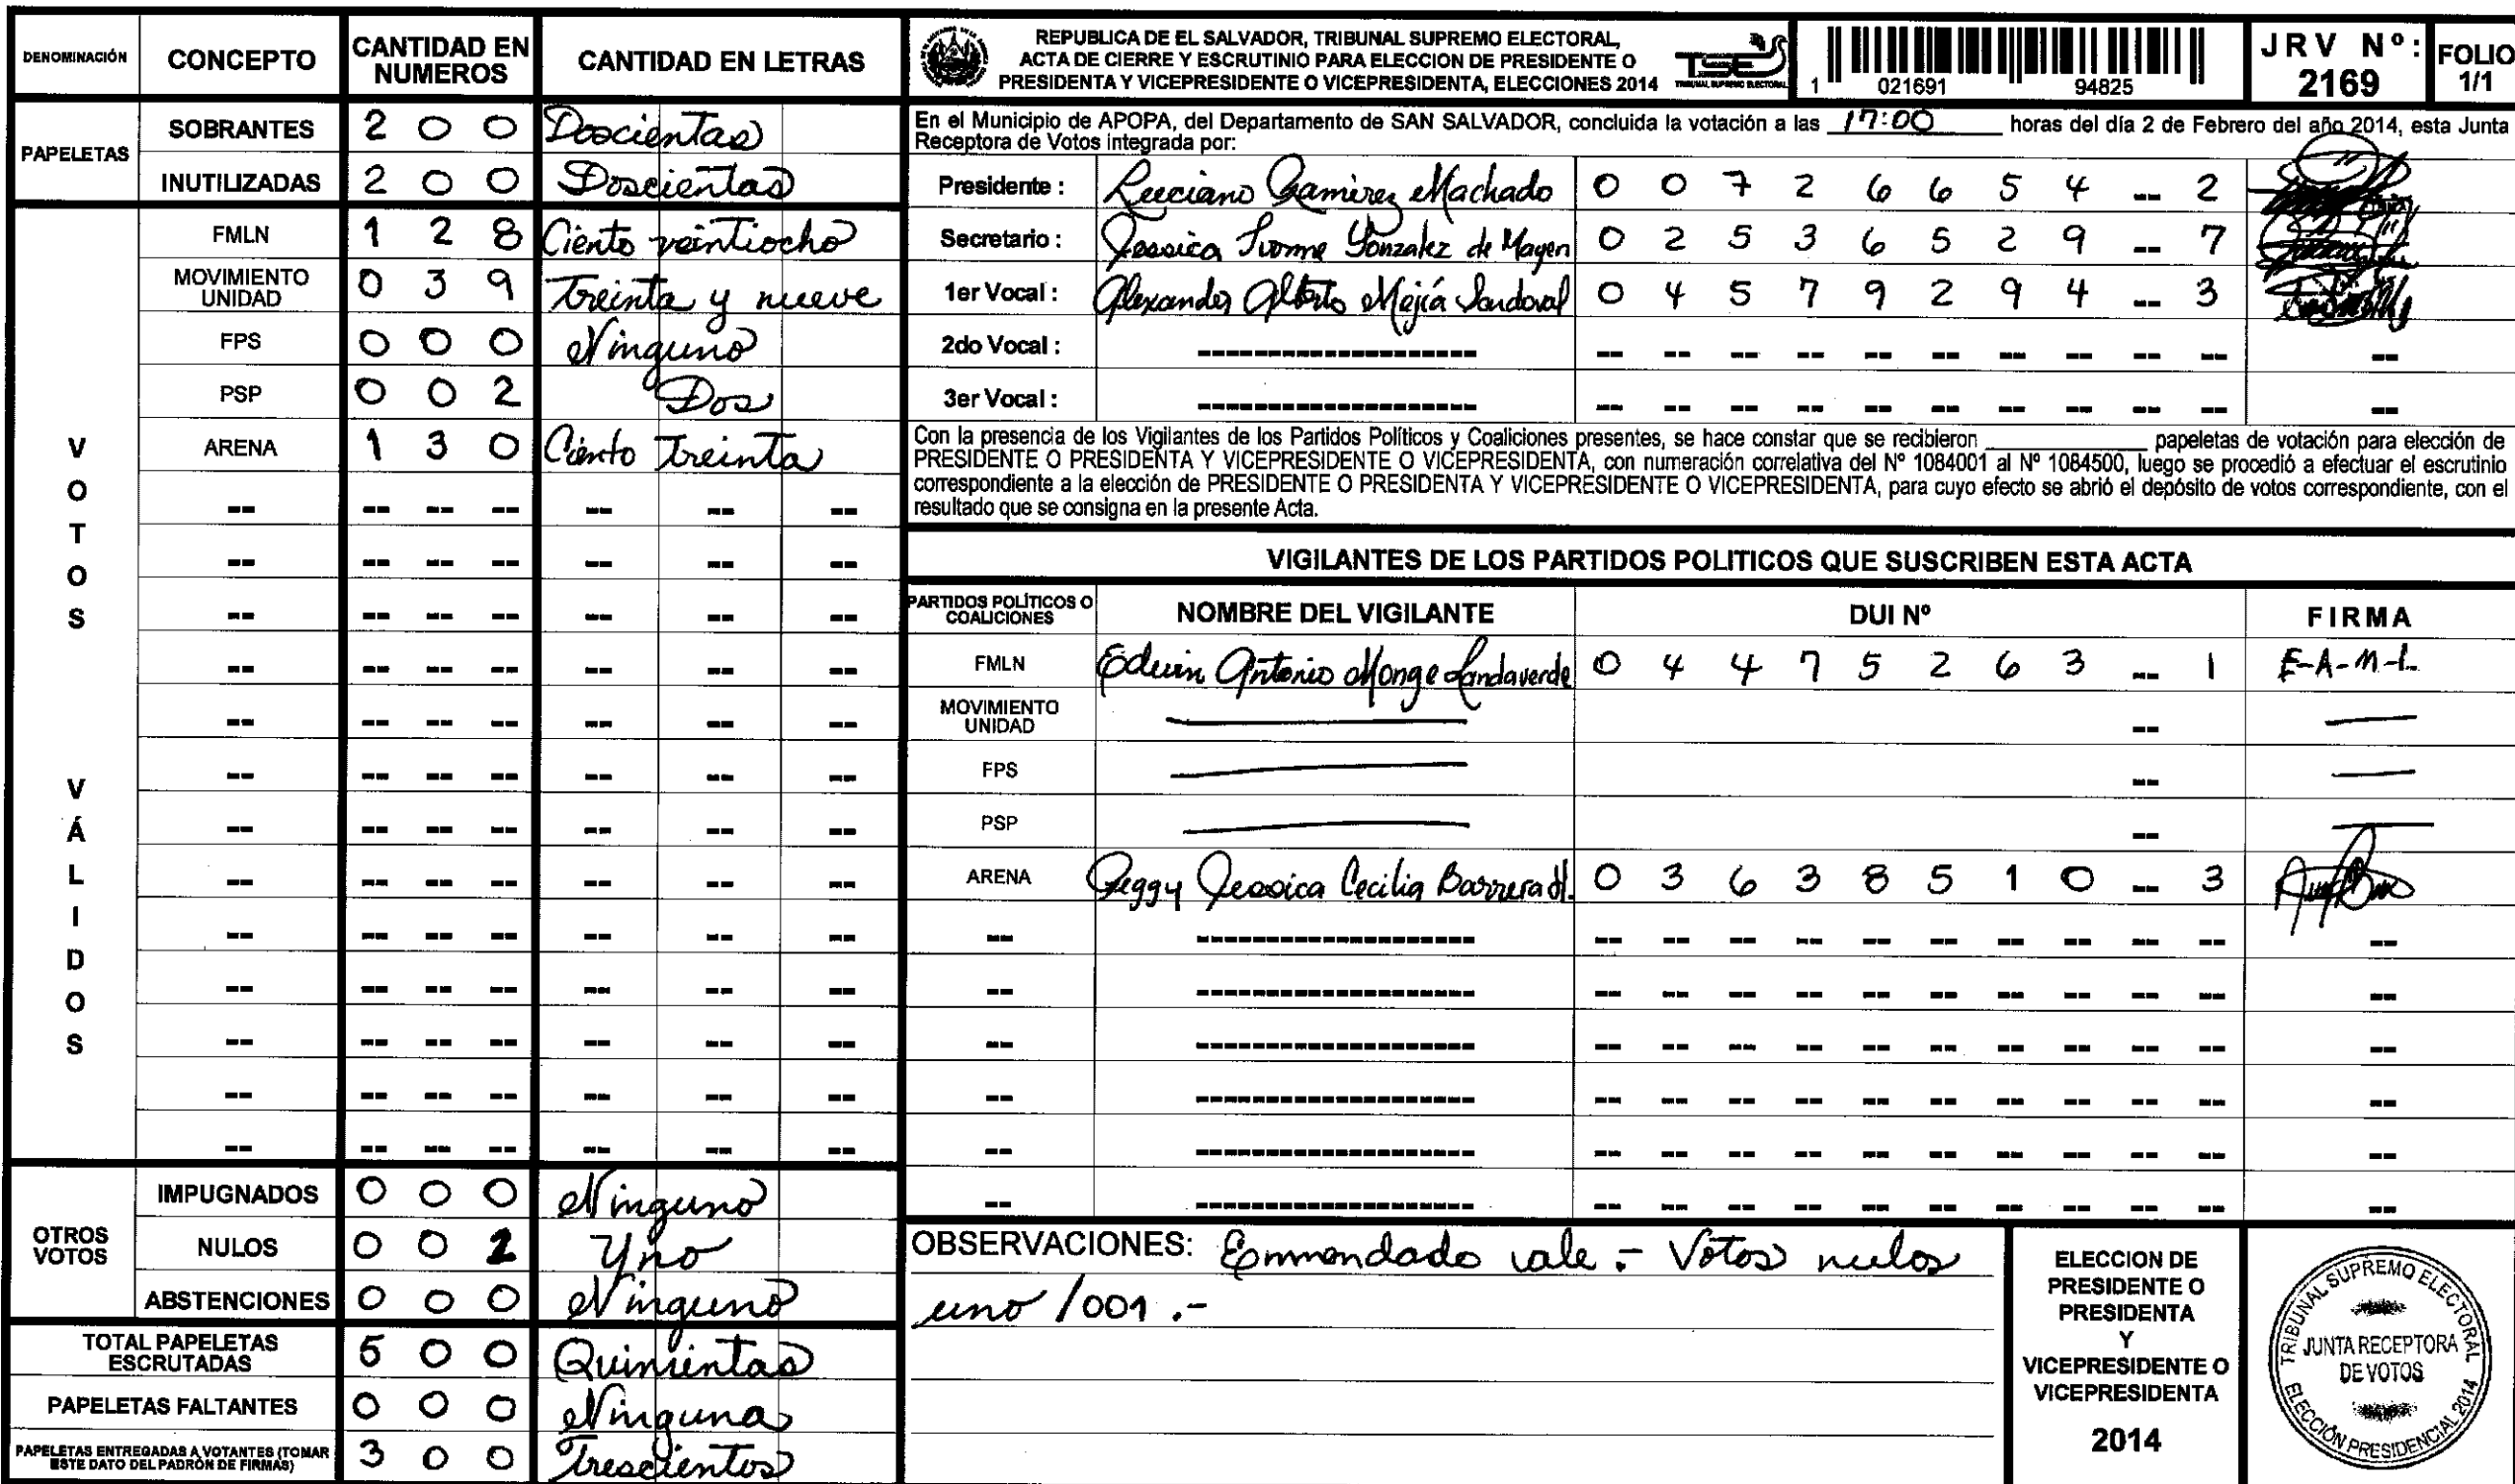 DENOMINACIÓN CONCEPTO CANTIDAD EN NUMEROS CANTIDAD EN LETRAS
PAPELETAS
SOBRANTES 2 0 0 Doscientas
INUTILIZADAS 2 0 0 Doscientas
VOTOS VÁLIDOS
FMLN 1 2 8 Ciento veintiocho
MOVIMIENTO UNIDAD 0 3 9 Treinta y nueve
FPS 0 0 0 Ninguno
PSP 0 0 2 Dos
ARENA 1 3 0 Ciento Treinta
OTROS VOTOS
IMPUGNADOS 0 0 0 Ninguno
NULOS 0 0 Uno
ABSTENCIONES 0 0 0 Ninguno
TOTAL PAPELETAS ESCRUTADAS 5 0 0 Quinientas
PAPELETAS FALTANTES 0 0 0 Ninguna
PAPELETAS ENTREGADAS A VOTANTES (TOMAR ESTE DATO DEL PADRÓN DE FIRMAS) 3 0 0 Trescientos
REPUBLICA DE EL SALVADOR, TRIBUNAL SUPREMO ELECTORAL,
ACTA DE CIERRE Y ESCRUTINIO PARA ELECCION DE PRESIDENTE O
PRESIDENTA Y VICEPRESIDENTE O VICEPRESIDENTA, ELECCIONES 2014
TSE
TRIBUNAL SUPREMO ELECTORAL
1 021691 94825
JRV Nº: 2169
FOLIO 1/1
En el Municipio de APOPA, del Departamento de SAN SALVADOR, concluida la votación a las 17:00 horas del día 2 de Febrero del año 2014, esta Junta
Receptora de Votos integrada por:
Presidente : Luciano Ramirez Machado 0 0 7 2 6 6 5 4 -- 2
Secretario : Jessica Ivonne Gonzalez de Magen 0 2 5 3 6 5 2 9 -- 7
1er Vocal : Alexander Alberto Mejía Sandoval 0 4 5 7 9 2 9 4 -- 3
2do Vocal :
3er Vocal :
Con la presencia de los Vigilantes de los Partidos Políticos y Coaliciones presentes, se hace constar que se recibieron papeletas de votación para elección de
PRESIDENTE O PRESIDENTA Y VICEPRESIDENTE O VICEPRESIDENTA, con numeración correlativa del Nº 1084001 al Nº 1084500, luego se procedió a efectuar el escrutinio
correspondiente a la elección de PRESIDENTE O PRESIDENTA Y VICEPRESIDENTE O VICEPRESIDENTA, para cuyo efecto se abrió el depósito de votos correspondiente, con el
resultado que se consigna en la presente Acta.
VIGILANTES DE LOS PARTIDOS POLITICOS QUE SUSCRIBEN ESTA ACTA
PARTIDOS POLÍTICOS O COALICIONES NOMBRE DEL VIGILANTE DUI Nº FIRMA
FMLN Edwin Antonio Monge Landaverde 0 4 4 7 5 2 6 3 -- 1 E-A-M-L
MOVIMIENTO UNIDAD
FPS
PSP
ARENA Peggy Jessica Cecilia Barrera H. 0 3 6 3 8 5 1 0 -- 3
OBSERVACIONES: Enmendado vale.- Votos nulos
uno /001.-
ELECCION DE
PRESIDENTE O
PRESIDENTA
Y
VICEPRESIDENTE O
VICEPRESIDENTA
2014
TRIBUNAL SUPREMO ELECTORAL
JUNTA RECEPTORA
DE VOTOS
ELECCIÓN PRESIDENCIAL 2014